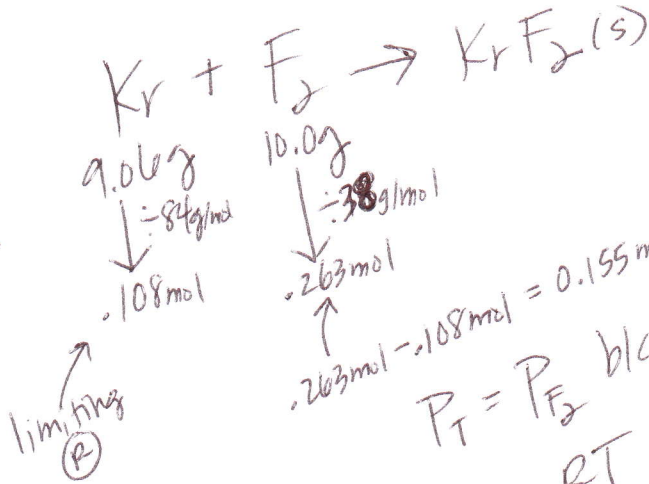 Kr + F₂ → KrF₂(s)
9.06g 10.0g
÷84g/mol ÷38g/mol
.108mol .263mol
.263mol - .108mol = 0.155 m
limiting
R
P_T = P_F₂ b/c
RT